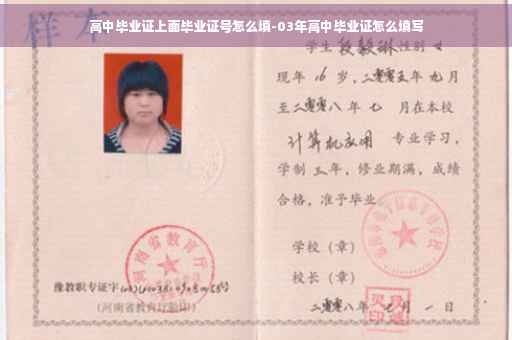 高中毕业证上面毕业证号怎么填-03年高中毕业证怎么填写
样本
学生段毅琳性别女
现年16岁，二零零五年九月
至二零零八年七月在本校
计算机应用 专业学习，
学制三年，修业期满，成绩
合格，准予毕业。
学校（章）
校长（章）
二零零八年七月一日
河南省教育厅
豫教职专证字
（河南省教育厅验印）